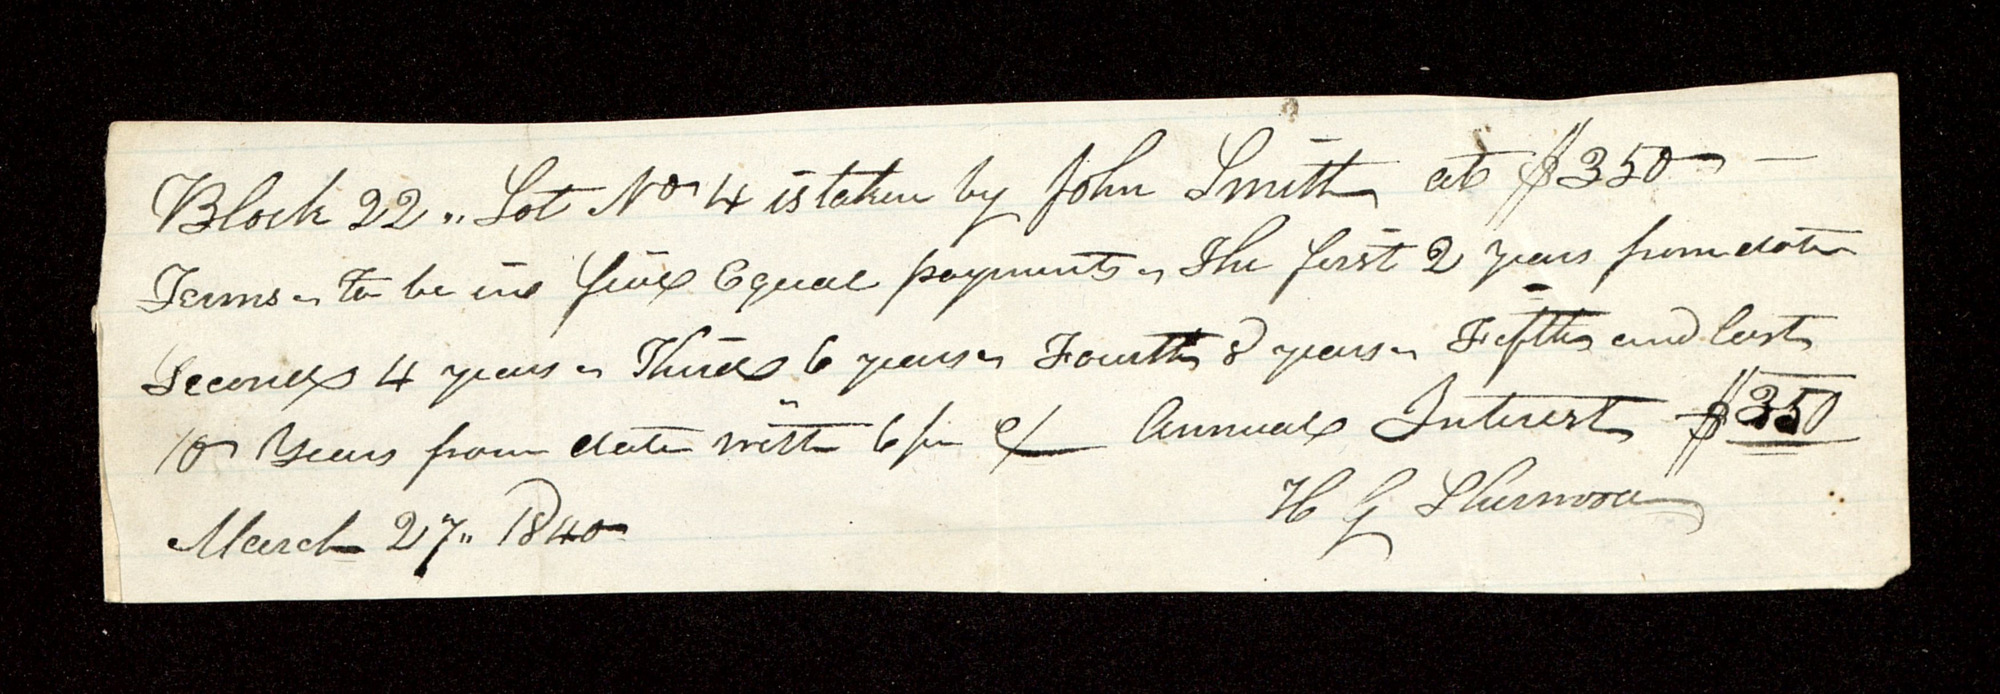 Block 22 " Lot No 4 is taken by John Smith at $350 —
Terms - to be in five Equal payments - The first 2 years from date
Second 4 years - Third 6 years - Fourth 8 years - Fifth and last
10 Years from date with 6 per c/ Annual Interest $350
H G Sherwood
March 27" 1840